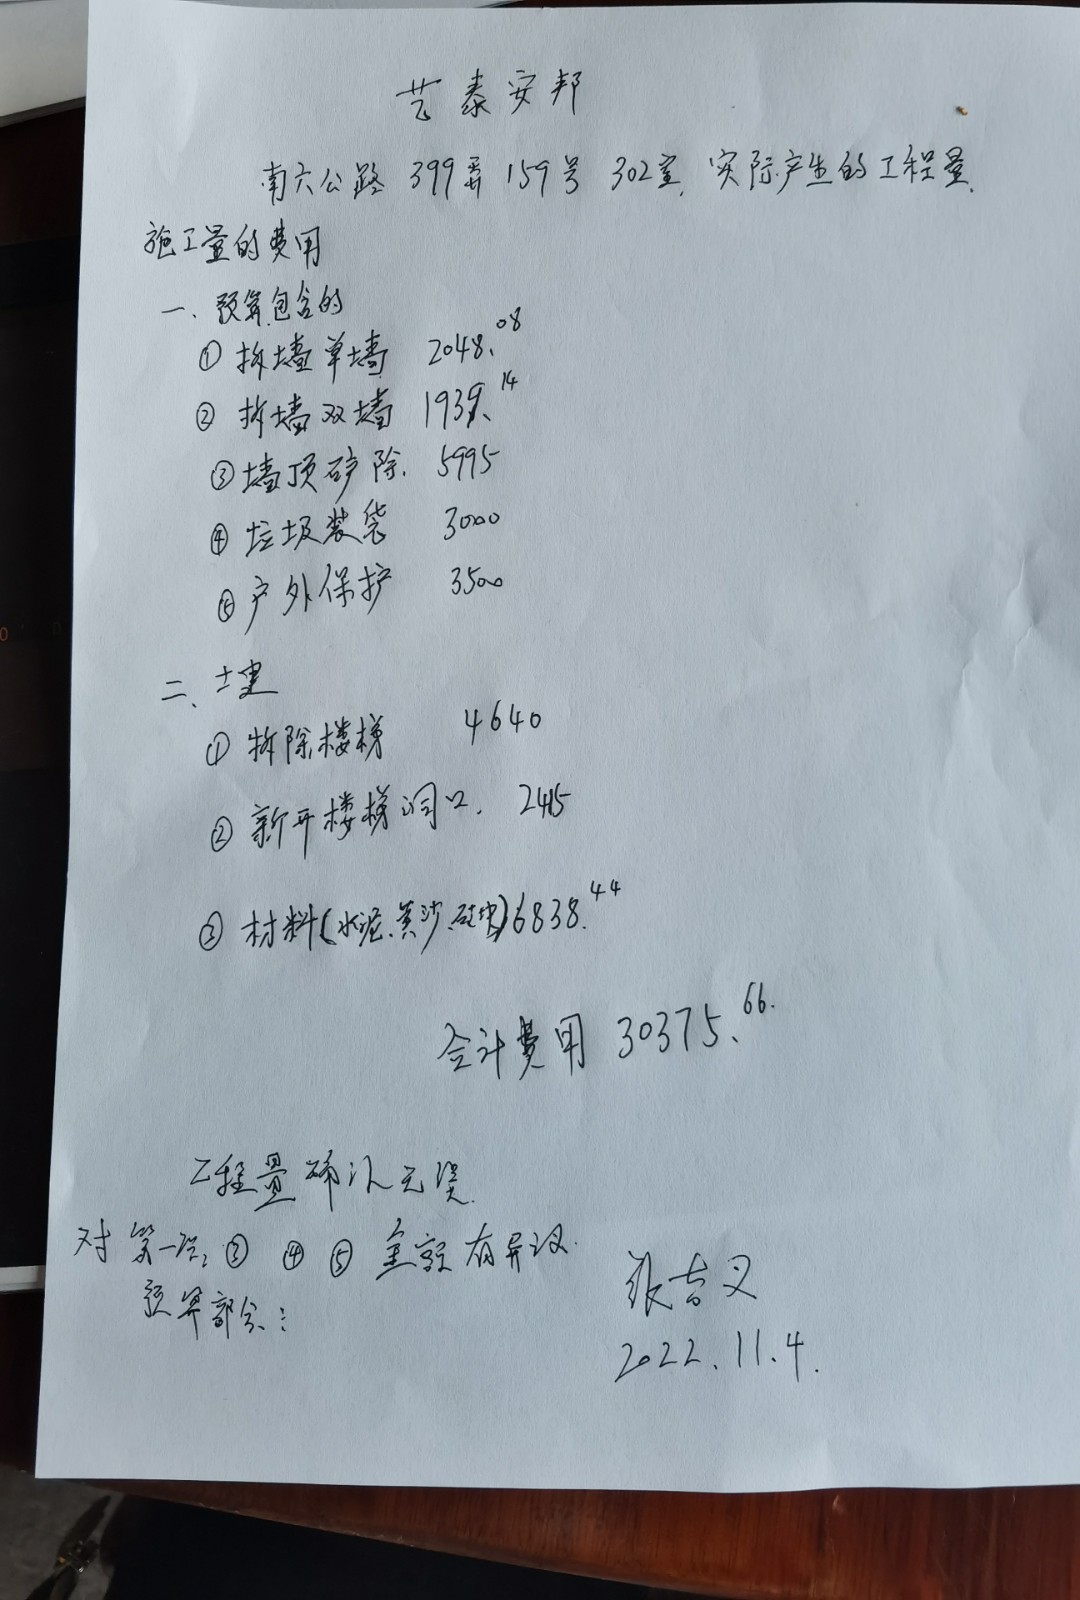 艺泰安邦
南六公路 399弄 159号 302室 实际产生的工程量
施工量的费用
一、预算包含的
① 拆墙单墙 2048.08
② 拆墙双墙 1939.14
③ 墙顶铲除. 5995
④ 垃圾装袋 3000
⑤ 户外保护 3500
二、土建
① 拆除楼梯 4640
② 新开楼梯洞口. 2415
③ 材料(水泥、黄沙、砖块)6838.44
合计费用 30375.66.
工程量确认无误
对第一项: ③ ④ ⑤ 金额有异议.
预算部分:
张吉义
2022.11.4.